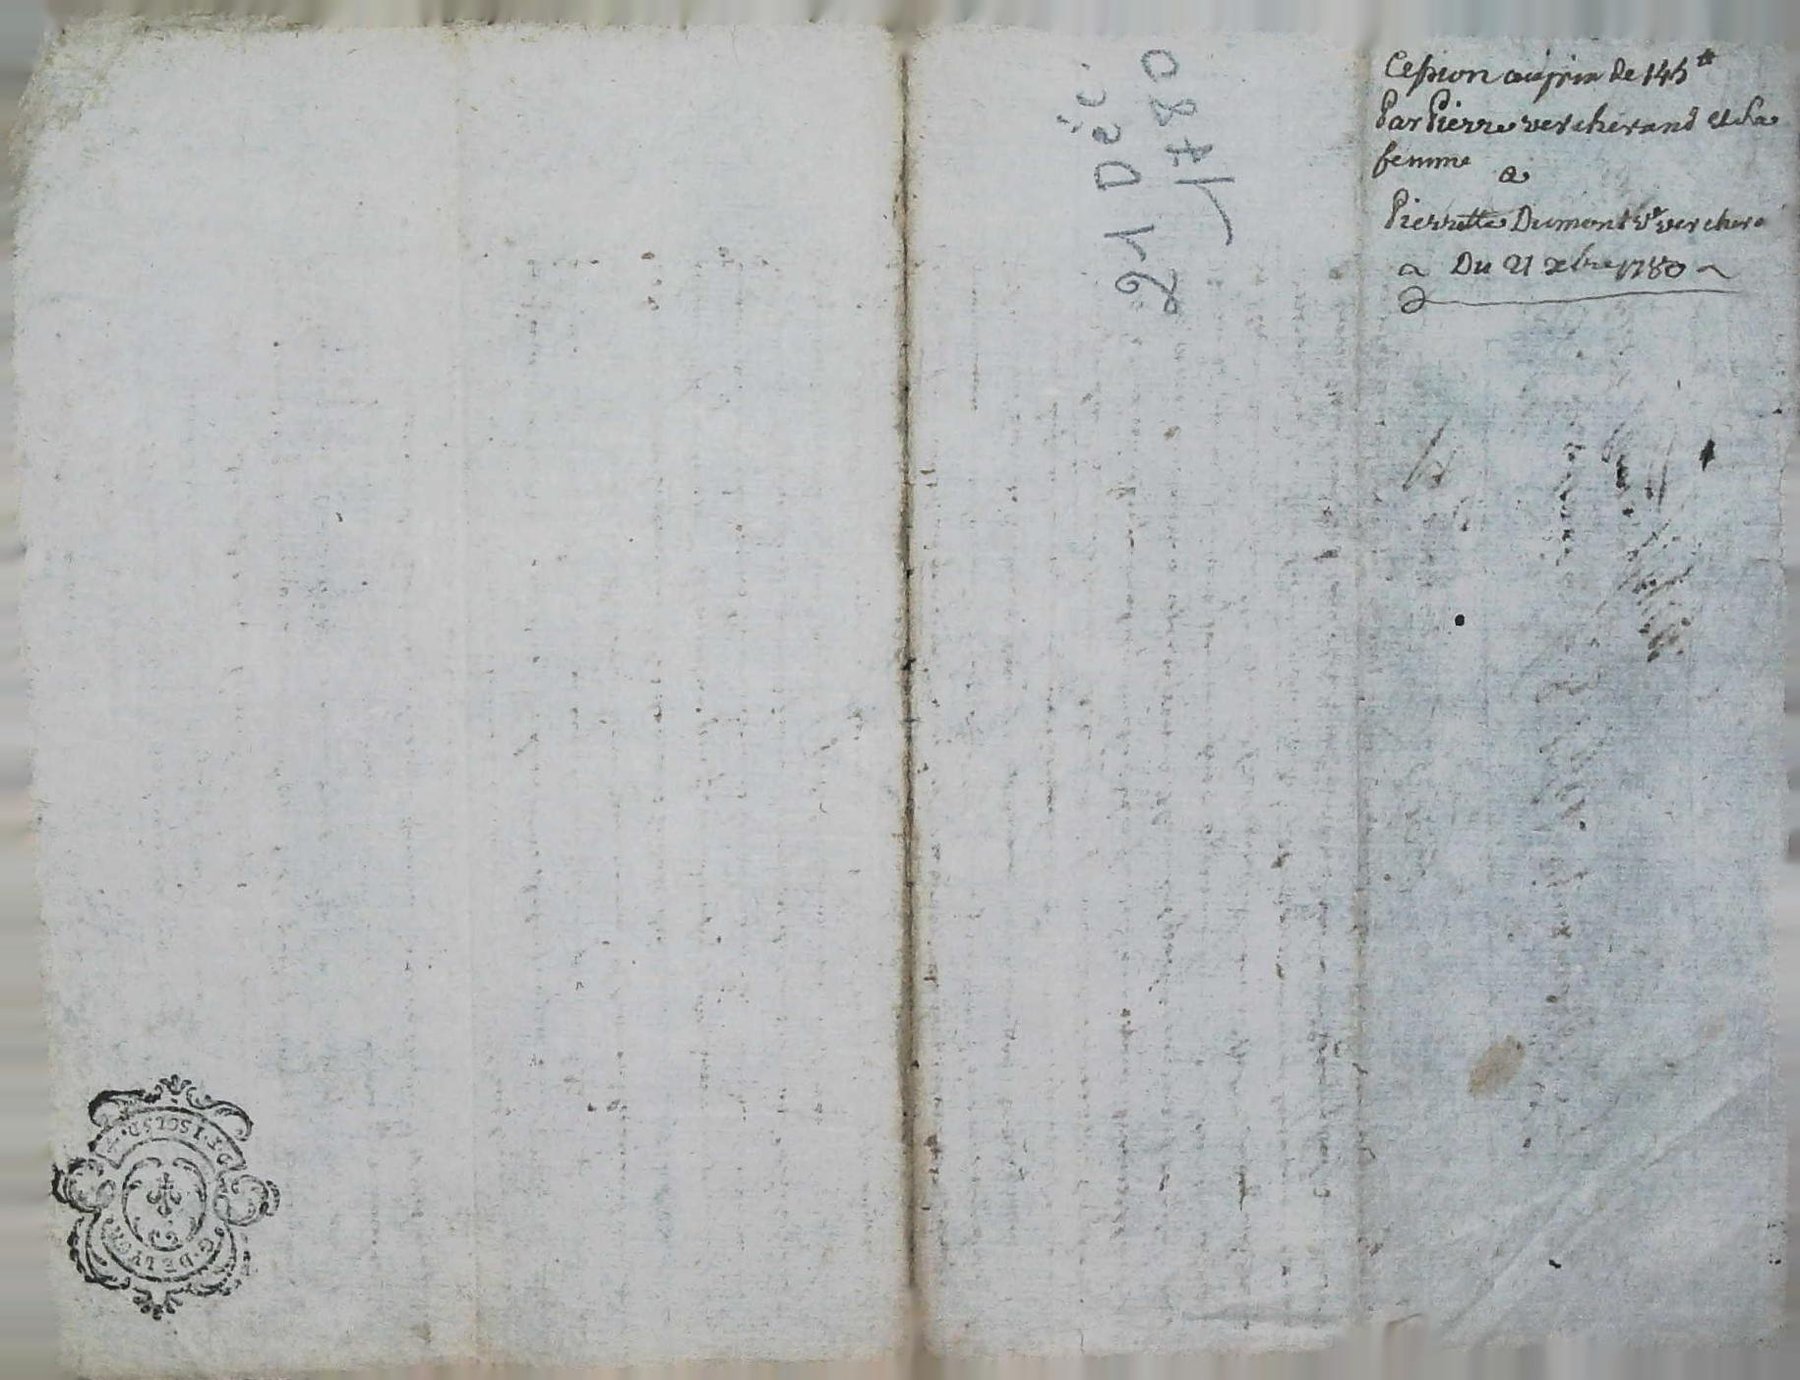 Cession au prix de 145 ₶
Par Pierre vercherand et sa
femme
a
Pierrette Dumont ve verchere
Du 21 xbre 1780
21 Déc.
1780
G. DE LYON